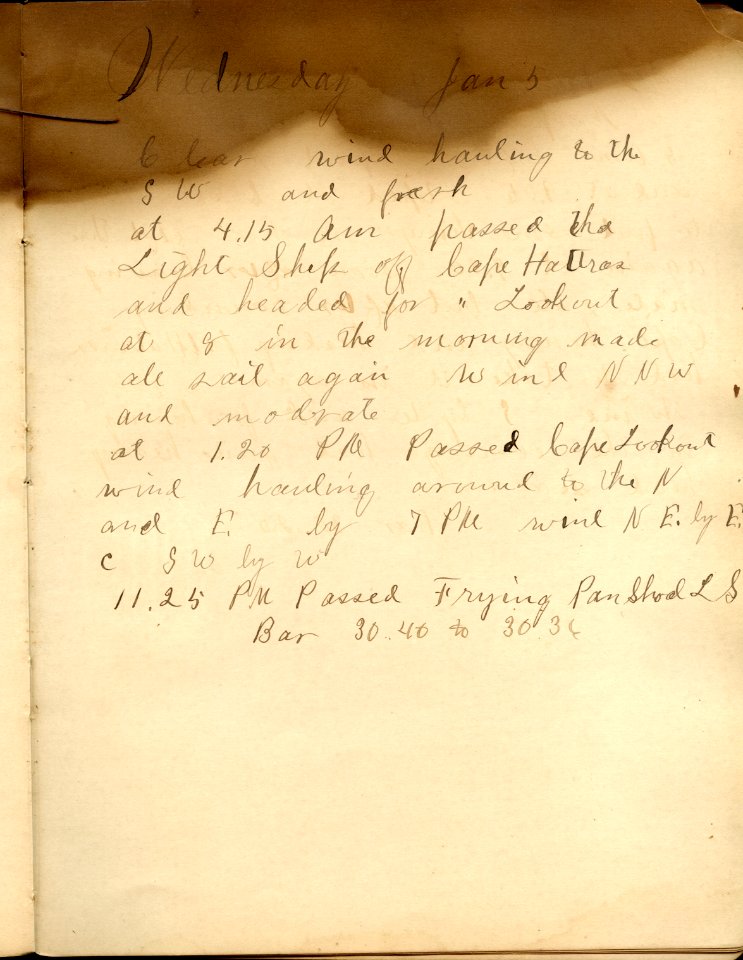 Wednesday Jan 5
Clear wind hauling to the
S W and fresh
at 4.15 Am passed the
Light Ship off Cape Hattras
and headed for " Lookout
at 8 in the morning made
all sail again Wind N N W
and modrate
at 1.20 PM Passed Cape Lookout
wind hauling around to the N
and E. by 7 PM wind N E. by E.
C S W by W
11.25 PM Passed Frying Pan Shoal L S
Bar 30.40 to 30.36